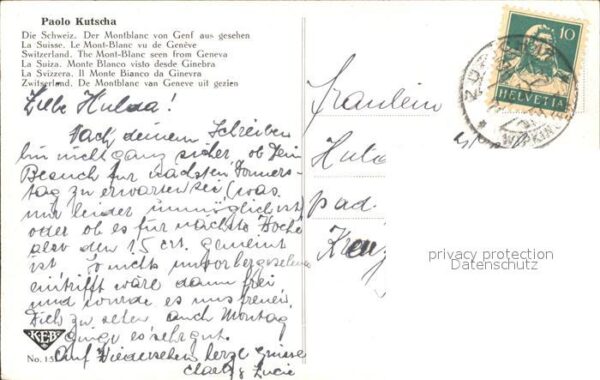 Paolo Kutscha
Die Schweiz. Der Montblanc von Genf aus gesehen
La Suisse. Le Mont-Blanc vu de Genève
Switzerland. The Mont-Blanc seen from Geneva
La Suiza. Monte Blanco visto desde Ginebra
La Svizzera. Il Monte Bianco da Ginevra
Zwitserland. De Montblanc van Geneve uit gezien
Liebe Hulda!
Nach deinem Schreiben
bin nicht ganz sicher, ob Dein
Besuch für nächsten Donners-
tag zu erwarten sei (was
mir leider unmöglich ist)
oder ob es für nächste Woche
also den 15 crt. gemeint
ist. So nichts unvorhergesehenes
eintrifft wäre dann frei
und würde es uns freuen
Dich zu sehen auch Montag
ginge es sehr gut.
Auf Wiedersehen herzl Grüsse
& Lucie
KEB
No. 15
10
HELVETIA
ZÜRICH
WIPKIN
Fräulein
Hul
pad.
Kreuz
privacy protection
Datenschutz